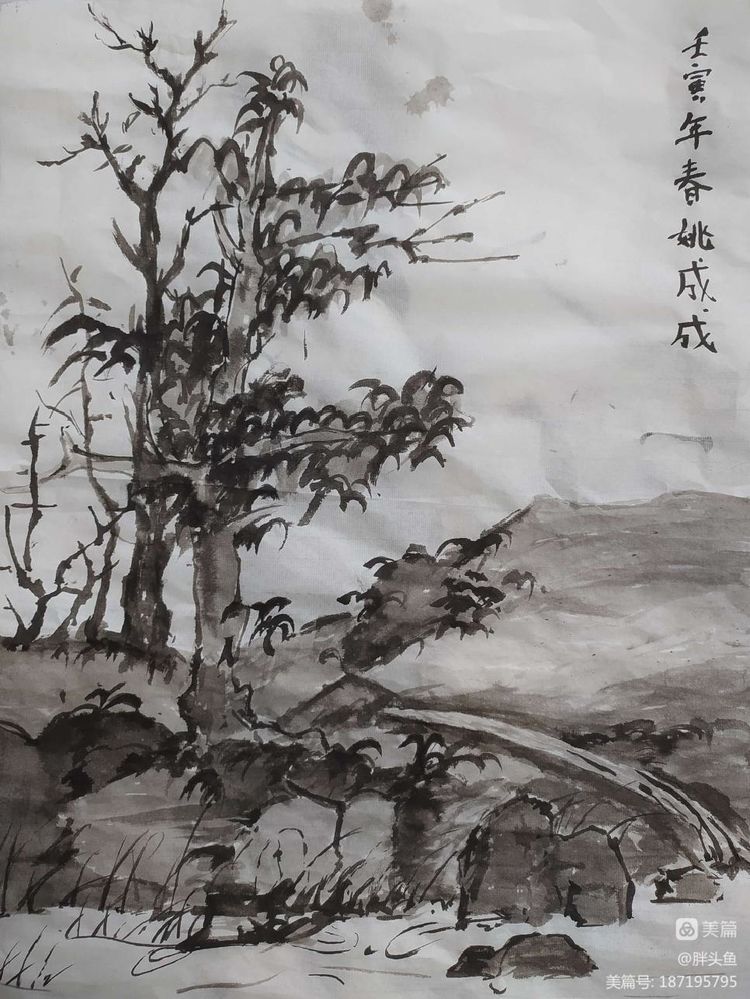 壬寅年春姚成成
美篇
@胖头鱼
美篇号: 187195795